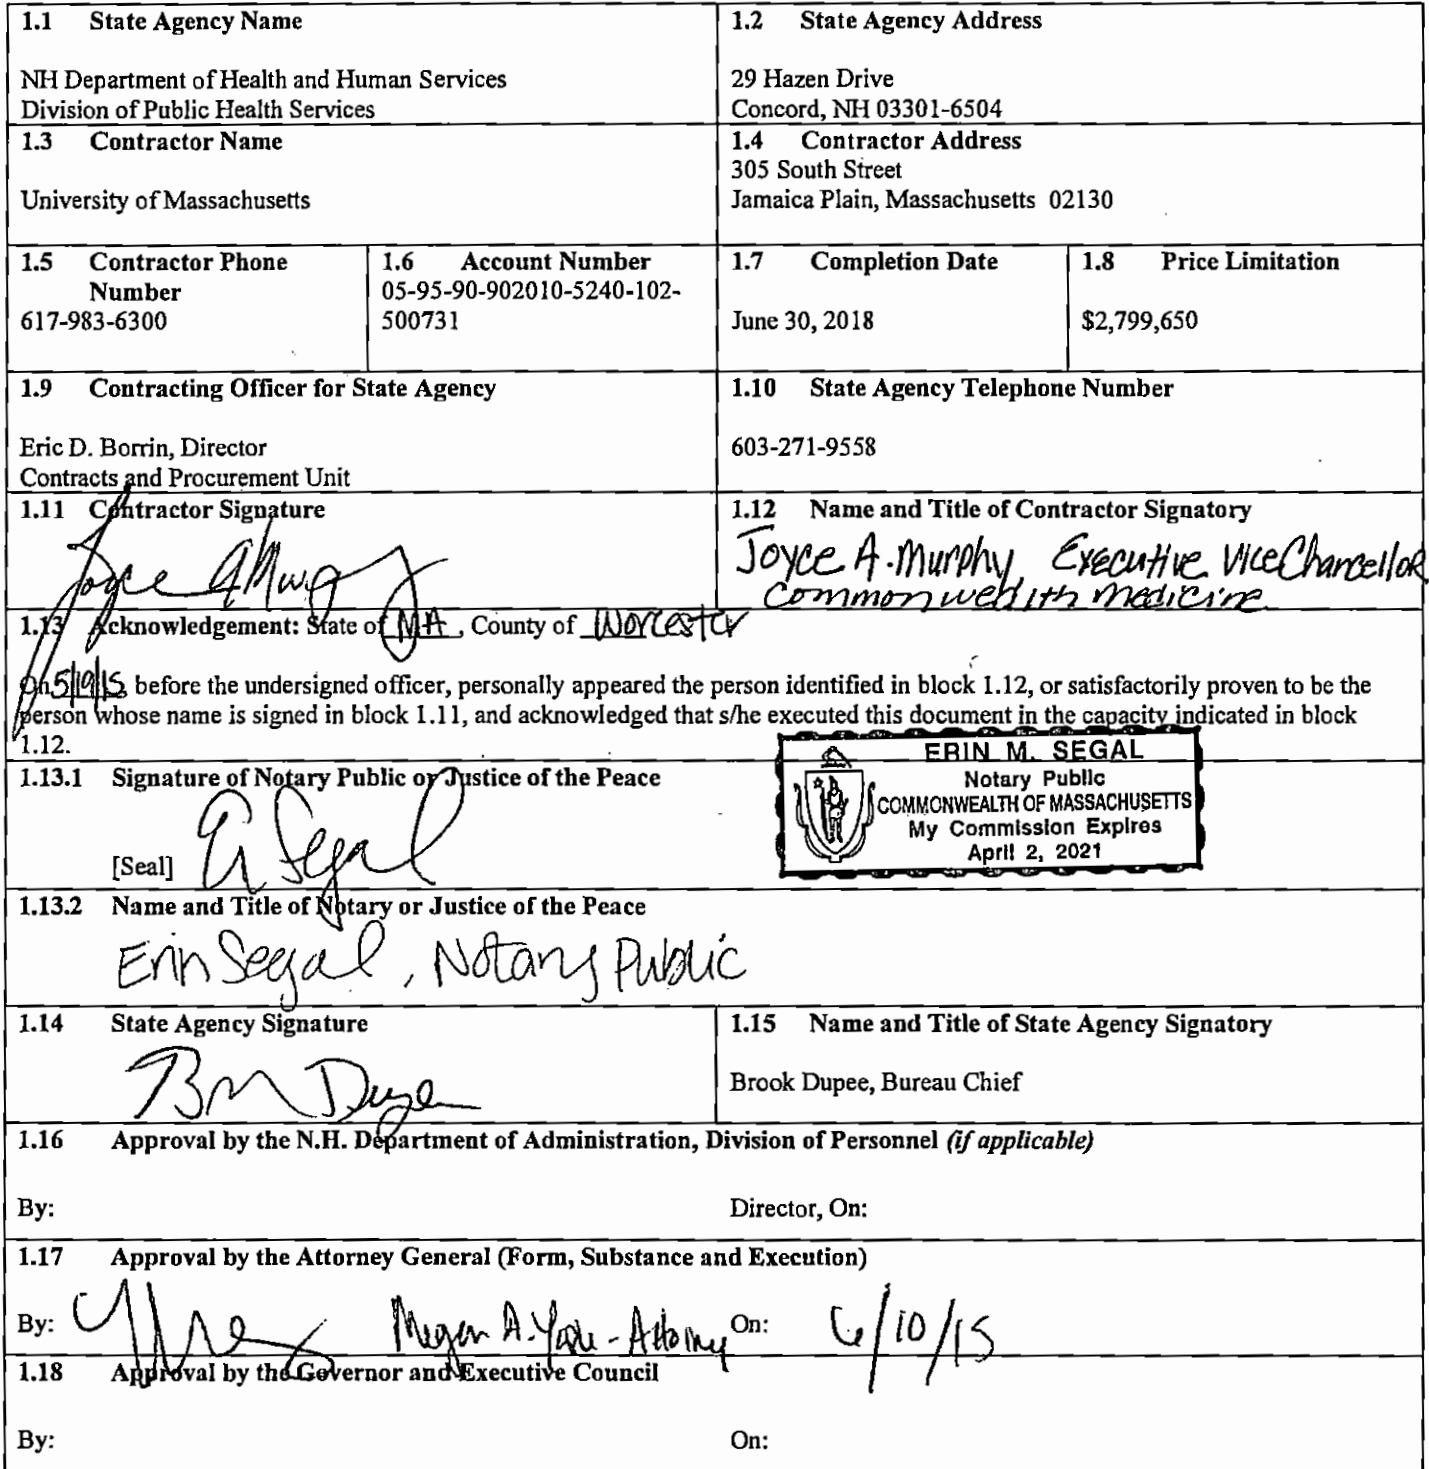 1.1 State Agency Name
NH Department of Health and Human Services
Division of Public Health Services
1.2 State Agency Address
29 Hazen Drive
Concord, NH 03301-6504
1.3 Contractor Name
University of Massachusetts
1.4 Contractor Address
305 South Street
Jamaica Plain, Massachusetts 02130
1.5 Contractor Phone
Number
617-983-6300
1.6 Account Number
05-95-90-902010-5240-102-
500731
1.7 Completion Date
June 30, 2018
1.8 Price Limitation
$2,799,650
1.9 Contracting Officer for State Agency
Eric D. Borrin, Director
Contracts and Procurement Unit
1.10 State Agency Telephone Number
603-271-9558
1.11 Contractor Signature
Joyce A Murphy
1.12 Name and Title of Contractor Signatory
Joyce A. Murphy, Executive Vice Chancellor
Commonwealth Medicine
1.13 Acknowledgement: State of MA, County of Worcester
On 5/19/15, before the undersigned officer, personally appeared the person identified in block 1.12, or satisfactorily proven to be the
person whose name is signed in block 1.11, and acknowledged that s/he executed this document in the capacity indicated in block
1.12.
ERIN M. SEGAL
Notary Public
COMMONWEALTH OF MASSACHUSETTS
My Commission Expires
April 2, 2021
1.13.1 Signature of Notary Public or Justice of the Peace
[Seal] E Segal
1.13.2 Name and Title of Notary or Justice of the Peace
Erin Segal, Notary Public
1.14 State Agency Signature
1.15 Name and Title of State Agency Signatory
Brook Dupee, Bureau Chief
1.16 Approval by the N.H. Department of Administration, Division of Personnel (if applicable)
By: Director, On:
1.17 Approval by the Attorney General (Form, Substance and Execution)
By: Megan A. - Attorney On: 6/10/15
1.18 Approval by the Governor and Executive Council
By: On: